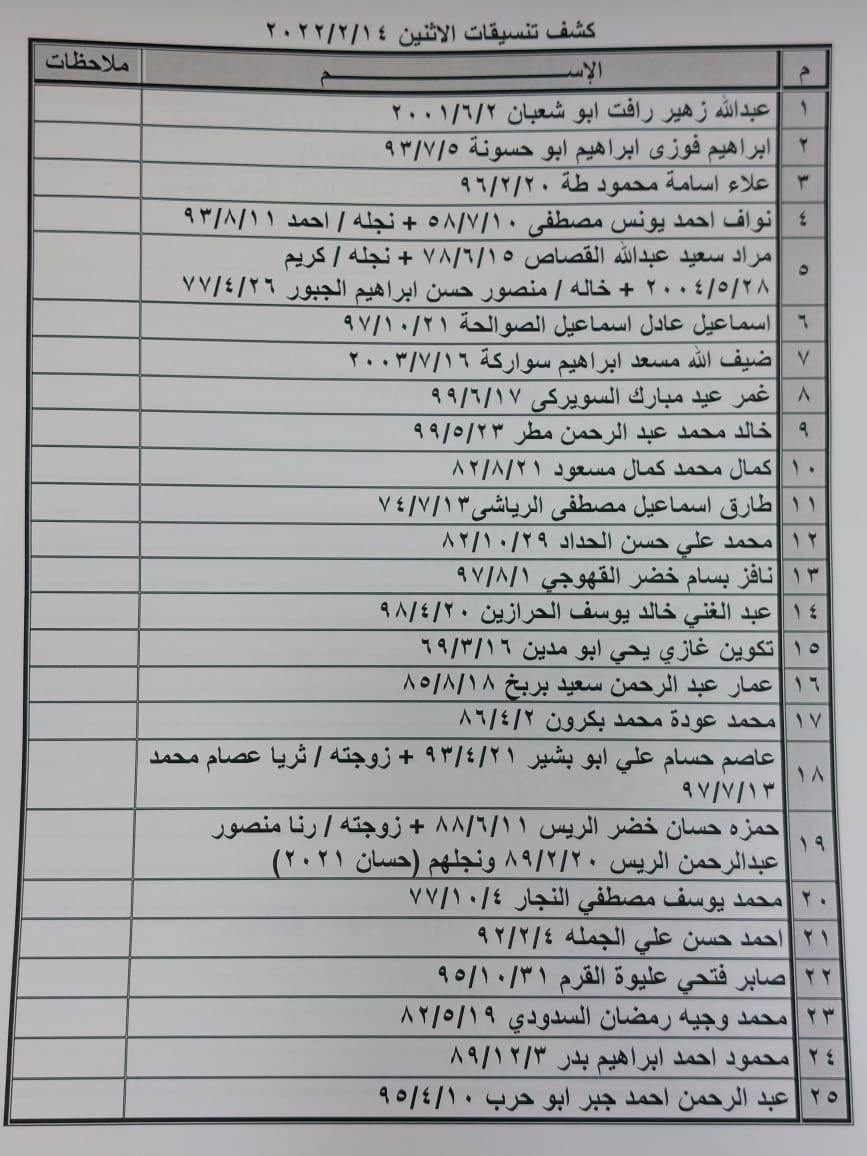 كشف تنسيقات الاثنين ٢٠٢٢/٢/١٤
م الإســـــــــــم ملاحظات
١ عبدالله زهير رافت ابو شعبان ٢٠٠١/٦/٢
٢ ابراهيم فوزى ابراهيم ابو حسونة ٩٣/٧/٥
٣ علاء اسامة محمود طة ٩٦/٢/٢٠
٤ نواف احمد يونس مصطفى ٥٨/٧/١٠ + نجله / احمد ٩٣/٨/١١
٥ مراد سعيد عبدالله القصاص ٧٨/٦/١٥ + نجله / كريم
٢٠٠٤/٥/٢٨ + خاله / منصور حسن ابراهيم الجبور ٧٧/٤/٢٦
٦ اسماعيل عادل اسماعيل الصوالحة ٩٧/١٠/٢١
٧ ضيف الله مسعد ابراهيم سواركة ٢٠٠٣/٧/١٦
٨ غمر عيد مبارك السويركى ٩٩/٦/١٧
٩ خالد محمد عبد الرحمن مطر ٩٩/٥/٢٣
١٠ كمال محمد كمال مسعود ٨٢/٨/٢١
١١ طارق اسماعيل مصطفى الرياشى٧٤/٧/١٣
١٢ محمد علي حسن الحداد ٨٢/١٠/٢٩
١٣ نافز بسام خضر القهوجي ٩٧/٨/١
١٤ عبد الغني خالد يوسف الحرازين ٩٨/٤/٢٠
١٥ تكوين غازي يحي ابو مدين ٦٩/٣/١٦
١٦ عمار عبد الرحمن سعيد بربخ ٨٥/٨/١٨
١٧ محمد عودة محمد بكرون ٨٦/٤/٢
١٨ عاصم حسام علي ابو بشير ٩٣/٤/٢١ + زوجته / ثريا عصام محمد
٩٧/٧/١٣
١٩ حمزه حسان خضر الريس ٨٨/٦/١١ + زوجته / رنا منصور
عبدالرحمن الريس ٨٩/٢/٢٠ ونجلهم (حسان ٢٠٢١)
٢٠ محمد يوسف مصطفي النجار ٧٧/١٠/٤
٢١ احمد حسن علي الجمله ٩٢/٢/٤
٢٢ صابر فتحي عليوة القرم ٩٥/١٠/٣١
٢٣ محمد وجيه رمضان السدودي ٨٢/٥/١٩
٢٤ محمود احمد ابراهيم بدر ٨٩/١٢/٣
٢٥ عبد الرحمن احمد جبر ابو حرب ٩٥/٤/١٠